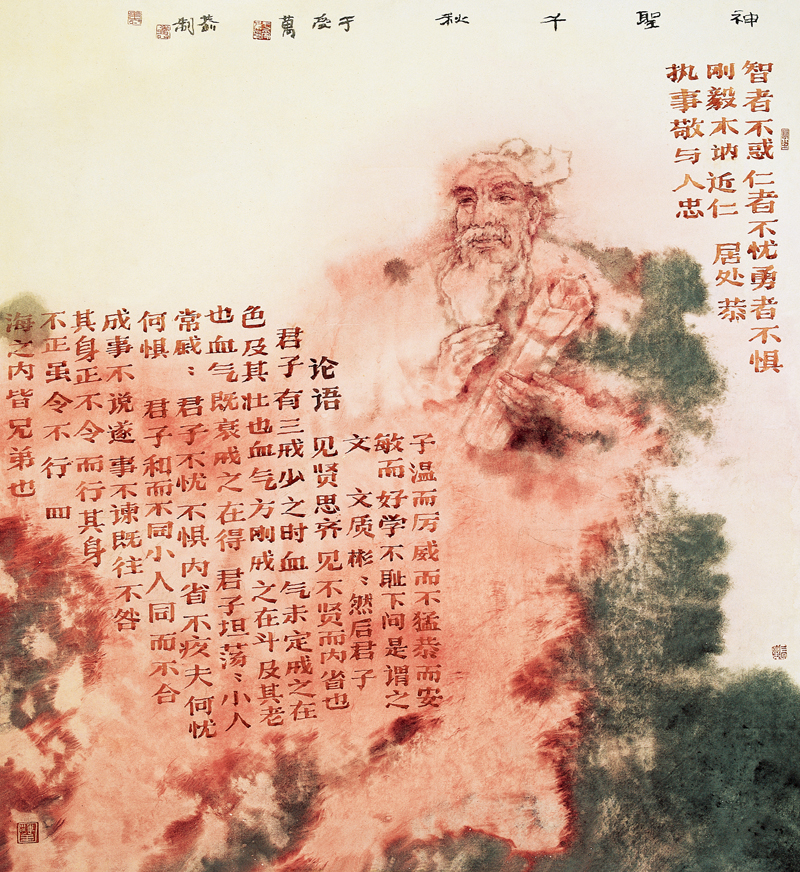 神聖千秋
于受萬
制
智者不惑仁者不忧勇者不惧
刚毅木讷近仁 居处恭
执事敬与人忠
子温而厉威而不猛恭而安
敏而好学不耻下问是谓之
文 文质彬〻然后君子
论语 见贤思齐见不贤而内省也
君子有三戒少之时血气未定戒之在
色及其壮也血气方刚戒之在斗及其老
也血气既衰戒之在得 君子坦荡〻小人
常戚〻君子不忧不惧内省不疚夫何忧
何惧 君子和而不同小人同而不合
成事不说遂事不谏既往不咎
其身正不令而行其身
不正虽令不行 四
海之内皆兄弟也